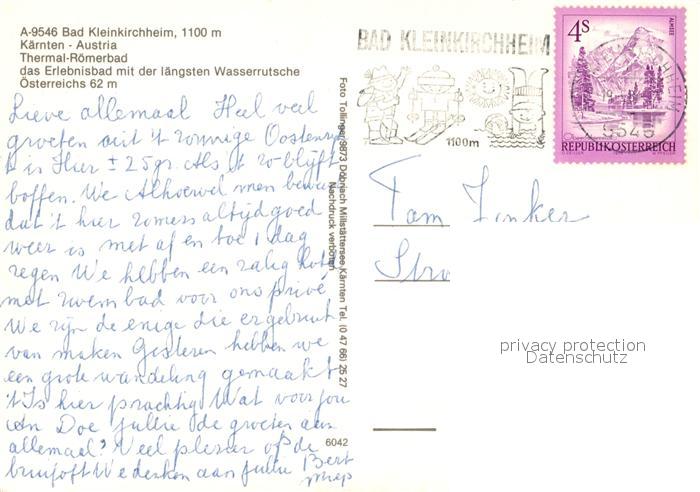 A-9546 Bad Kleinkirchheim, 1100 m
Kärnten - Austria
Thermal-Römerbad
das Erlebnisbad mit der längsten Wasserrutsche
Österreichs 62 m
Lieve allemaal Heel veel
groeten uit 't zonnige Oostenry
is Hier ± 25 gr. Als 't zo blijft
boffen. We
dat 't hier zomers altijd goed
weer is met af en toe 1 dag
regen We hebben een zalig hotel
met zwembad voor ons privé
We zijn de enige die er gebruik
van maken Gisteren hebben we
een grote wandeling gemaakt
't Is hier prachtig Wat voor jou
An Doe jullie de groeten aan
allemaal? Veel plezier op de
bruiloft We denken aan jullie Bert
Miep
6042
Foto Tollinger 9873 Döbriach Millstättersee Kärnten Tel. (0 47 66) 25 27
Nachdruck verboten
BAD KLEINKIRCHHEIM
1100m
4S
ALMSEE
REPUBLIK ÖSTERREICH
9546
Fam Tinker
privacy protection
Datenschutz